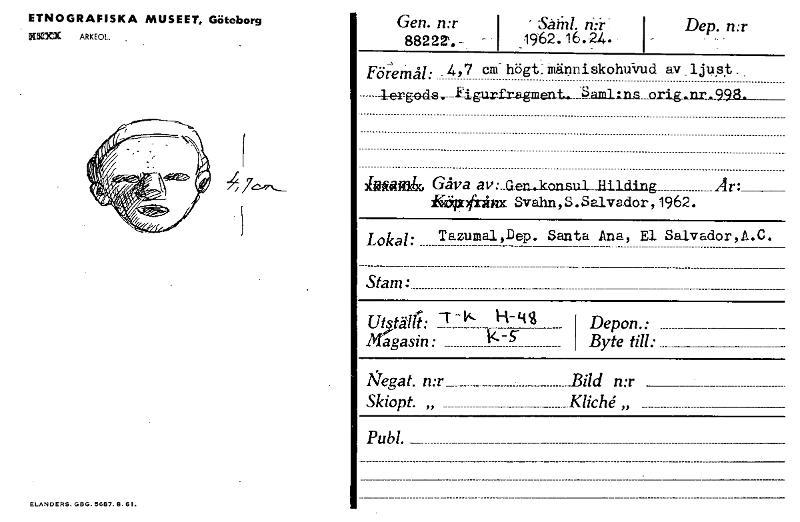 ETNOGRAFISKA MUSEET, Göteborg
ARKEOL.
4,7 cm
ELANDERS. GBG. 5687. 8. 61.
Gen. n:r Saml. n:r Dep. n:r
88222.- 1962.16.24.
Föremål: 4,7 cm högt människohuvud av ljust
lergods. Figurfragment. Saml:ns orig.nr.998.
Insaml. Gåva av: Gen.konsul Hilding År:
Köp från Svahn,S.Salvador,1962.
Lokal: Tazumal,Dep. Santa Ana, El Salvador,A.C.
Stam:
Utställt: T-K H-48 Depon.:
Magasin: K-5 Byte till:
Negat. n:r Bild n:r
Skiopt. „ Kliché „
Publ.